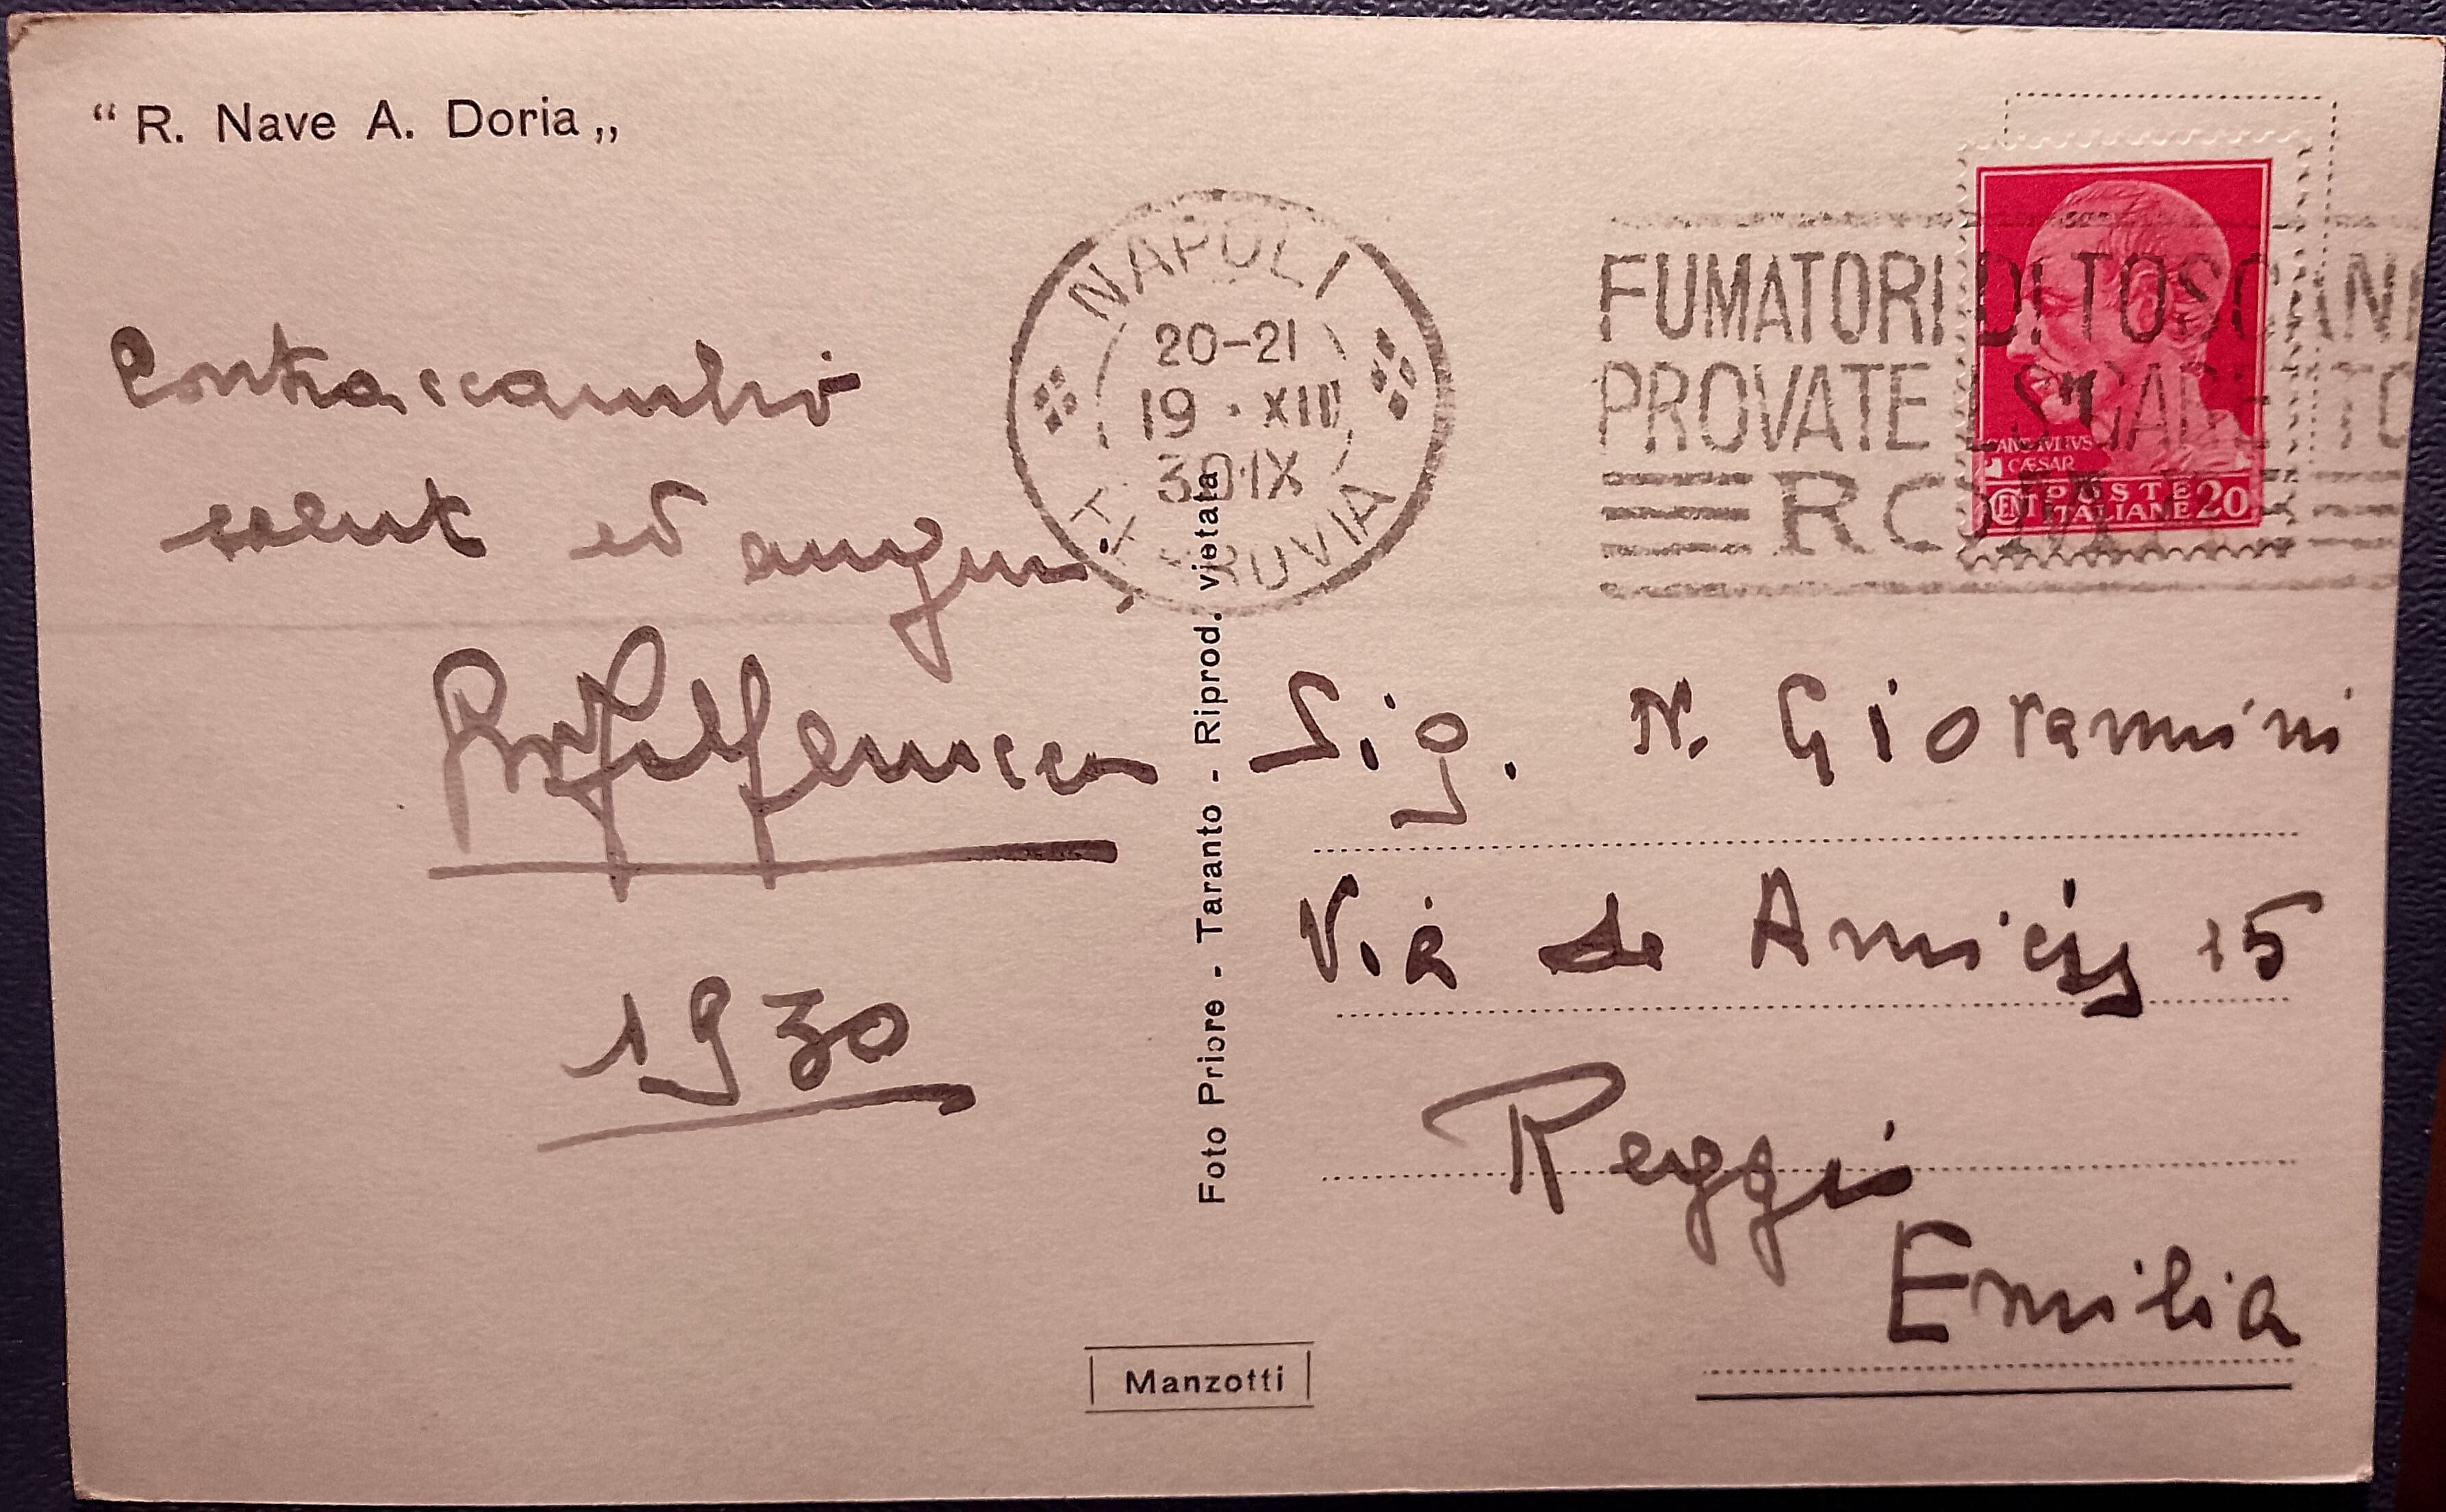 “ R. Nave A. Doria „
NAPOLI
20-21
19 · XII
30·IX
FERROVIA
FUMATORI DI TOSCANI
PROVATE
ROMA
CAIVS IVLIVS
CÆSAR
CENT POSTE
ITALIANE 20
Contraccambio
saluti ed auguri
1930
Foto Priore - Taranto - Riprod. vietata
Sig. N. Giovannini
Via de Amicis 15
Reggio
Emilia
Manzotti